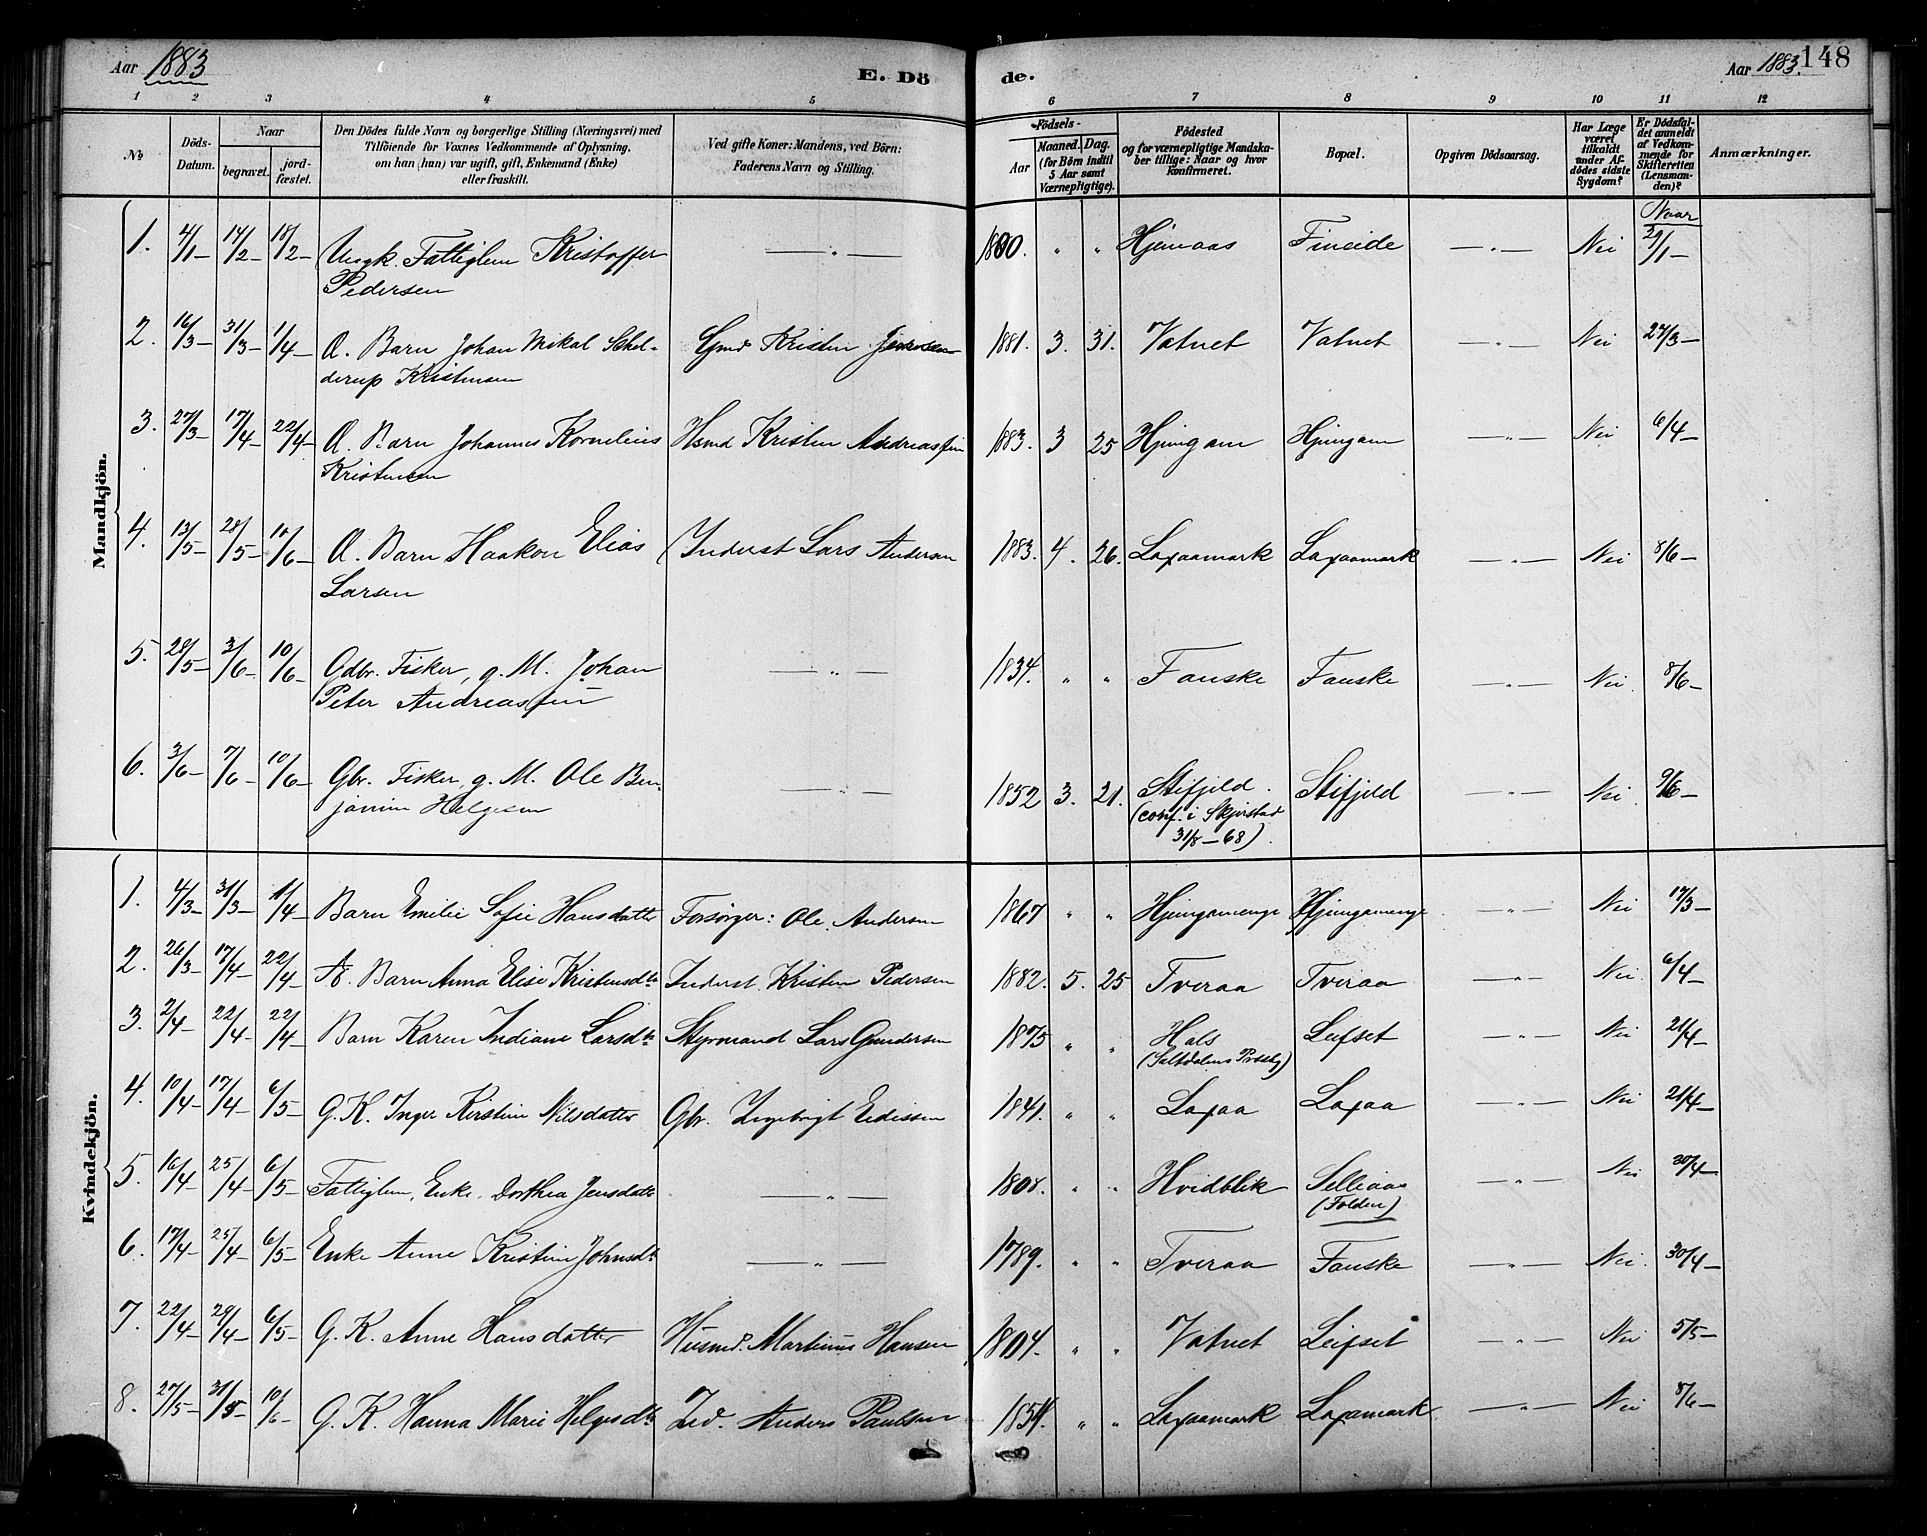 Aar 1883
E. Dö
de.
Aar 1883.
148
1 2 3 4 5 6 7 8 9 10 11 12
No
Döds-
Datum.
Naar
begravet.
jord-
fæstet.
Den Dödes fulde Navn og borgerlige Stilling (Næringsvei) med
Tilföiende for Voxnes Vedkommende af Oplysning,
om han (hun) var ugift, gift, Enkemand (Enke)
eller fraskilt.
Ved gifte Koner: Mandens, ved Börn:
Faderens Navn og Stilling.
Födsels-
Aar
Maaned. Dag.
(for Börn indtil
5 Aar samt
Værnepligtige).
Födested
og for værnepligtige Mandska-
ber tillige: Naar og hvor
konfirmeret.
Bopæl.
Opgiven Dödsaarsag.
Har Læge
været
tilkaldt
under Af-
dödes sidste
Sygdom?
Er Dödsfal-
det anmeldt
af Vedkom-
mende for
Skifteretten
(Lensman-
den)?
Anmærkninger.
Naar
Mandkjön.
1. 4/1 – 14/2 – 18/2 – Ungk. Fattiglem Kristoffer — " — 1800. " " Hjemaas Fineide — " — Nei /1 –
Pedersen
2. 16/3 – 31/3 – 1/4 – Æ. Barn Johan Mikal Schel- Gmd Kristen Jensen 1881. 3. 31. Vatnet Vatnet — " — Nei 27/3 –
derup Kristensen
3. 27/3 – 17/4 – 22/4 – Æ. Barn Johannes Kornelius Hsmd Kristen Andreassen 1883. 3 25 Hjemgam Hjemgam — " — Nei 6/4 –
Kristensen
4. 13/5 – 28/5 – 10/6 – Æ. Barn Haakon Elias Inderst Lars Andersen 1883. 4. 26. Laxaamark Laxaamark — " — Nei 8/6 –
Larsen
5. 28/5 – 3/6 – 10/6 – Gdbr. Fisker, g. M. Johan — " — 1834. " " Fauske Fauske — " — Nei. 8/6 –
Peter Andreassen
6. 3/6 – 7/6 – 10/6 – Gbr. Fisker, g. M. Ole Ben- — " — 1852 3. 21. Stifjeld. Stifjeld — " — Nei. 9/6 –
jamin Helgesen
(conf. i Skjerstad
31/8 – 68).
Kvindekjön.
1. 4/3 – 31/3 – 11/4 – Barn Emilie Sofie Hansdatter Forsørger: Ole Andersen 1867 " " Hjemgamenge Hjemgamenge — " — Nei 17/3 –
2. 26/3 – 17/4 – 22/4 – Æ. Barn Anna Elise Kristensdtr Inderst. Kristen Pedersen 1882. 5. 25 Tveraa Tveraa — " — Nei 6/4 –
3. 2/4 – 22/4 – 22/4 – Barn Karen Indiane Larsdtr Styrmand Lars Gundersen 1875 " " Hals Leifset — " — Nei 21/4 –
(Saltdalens Præstg)
4. 10/4 – 17/4 – 6/5 – G. K. Inger Kirstine Nilsdatter Gbr. Ingebrigt Eidissen 1841. " " Laxaa Laxaa — " — Nei 21/4 –
5. 16/4 – 25/4 – 6/5 – Fattiglem, Enke, Dorthea Jensdatter — " — 1808. " " Hvidblik Selliaas — " — Nei 30/4 –
(Folden)
6. 17/4 – 25/4 – 6/5 – Enke Anne Kristine Johnsdtr — " — 1789. " " Tveraa Fauske — " — Nei. 30/4 –
7. 22/4 – 29/4 – 6/5 – G. K. Anne Hansdatter Husmd. Martinus Hansen 1804. " " Vatnet Leifset — " — Nei 5/5 –
8. 27/5 – 31/5 – 10/6 – G. K. Hanna Marie Helgesdtr Ind. Anders Paulsen 1854. " " Laxaamark Laxamark — " — Nei 8/6 –